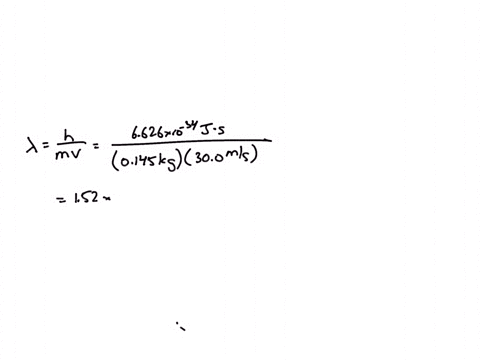 λ = h/mv = 6.626×10⁻³⁴ J·s / (0.145 kg)(30.0 m/s)
= 1.52 ×